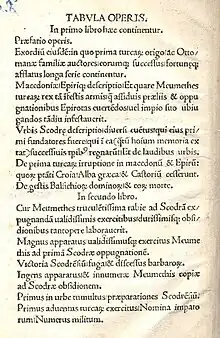 TABVLA OPERIS.
In primo libro hæc continentur.
Præfatio operis.
Exordiū eiusdē: in quo prima turcaꝝ origo: ac Otto-
manæ familiæ auctores: eorumꝗ successus: fortunæꝗ
afflatus longa serie continetur.
Macedoniæ: Epiriꝗ descriptio: Et quare Meumethes
turcaꝝ rex tā festis armisꝗ assiduis præliis & oppu-
gnationibus Epirotas eurtōdesuꝗ impio suo iubu
gandos studio infestauerit.
Vrbis Scodræ descriptio: diuersi euētusꝗ eius pri
mi fundatores: fuerāt qui i eā: qui ꝓ hoium memoria ex
tat: successuis tpibꝰ regnarūt: & de laudibus urbis.
De prima turcaꝝ irruptione in macedonū & Epirū:
quoꝗ pacto Croia: Alba græca & Castoriū cesserunt.
De gestis Balsichioꝝ dominoꝝ: & eoꝝ morte.
In secundo libro.
Cur Meumethes truculētissima rabie ad Scodrā ex-
pugnandā ualidissimis exercitibus: durissimisꝗ ob-
sidionibus tantopere laborauerit.
Magnus apparatus: ualidissimusꝗ exercitus Meume
this ad primā Scodræ oppugnationē.
Victoria Scodrēsiū: fuga: & discessus barbaroꝝ.
Ingens apparatus: & innumeræ Meumethis copiæ
ad Scodræ obsidionem.
Primus in urbe tumultus: præparationes Scodrēsiū.
Primus aduentus turcaꝝ: exercitus: Nomina impato
rum: Numerus militum.